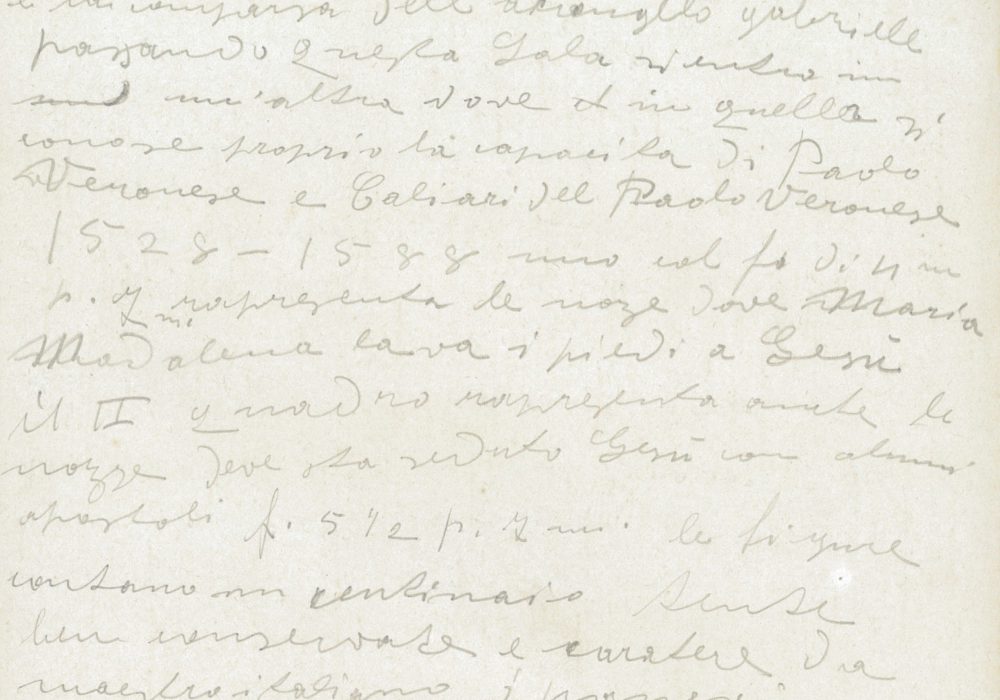 e la comparsa dell' arcangelo gabrielle
passando questa Sala rientro in
un'altra dove è in quella si
conose proprio la capacita di Paolo
Veronese e Caliari del Paolo Veronese
1528 – 1588 uno col fo di 11 m
p. 7 m. rapresenta le noze dove Maria
Madalena lava i piedi a Gesù
il II quadro rapresenta anche le
nozze dove sta seduto Gesù con alcuni
apostoli f. 5 1/2 p. 7 m. le figure
contano un centinaio tutte
ben conservate e caratere da
maestro italiano i